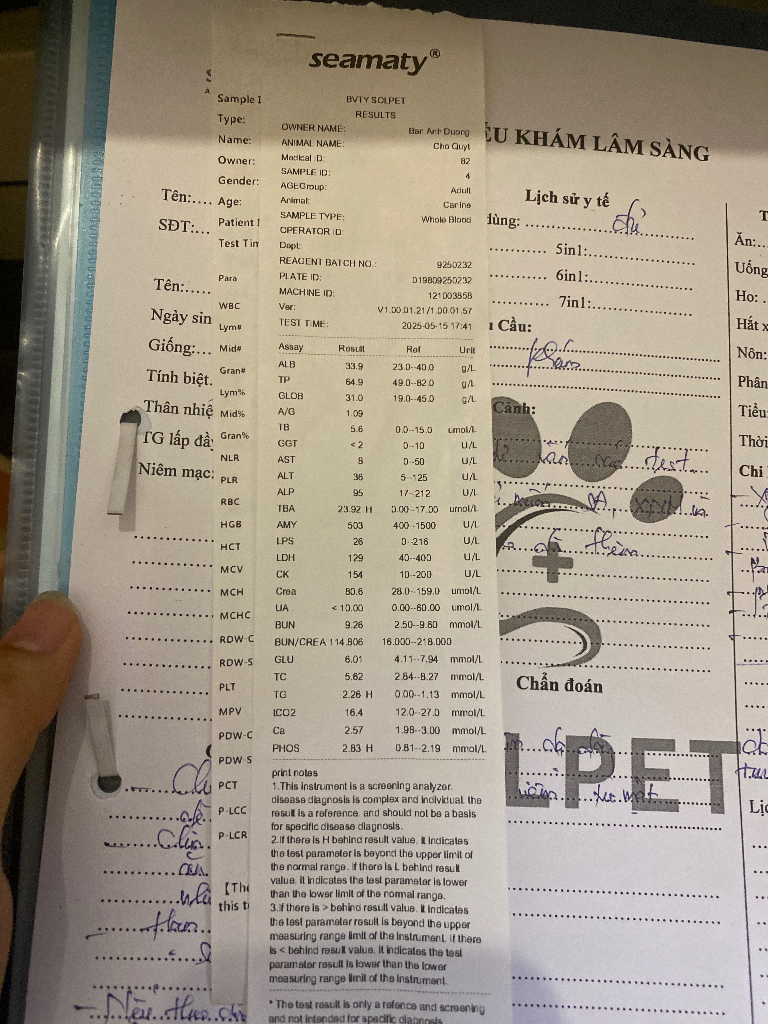 seamaty®
BVTY SOLPET
RESULTS
OWNER NAME: Ban Anh Duong
ANIMAL NAME: Cho Quyt
Medical ID: 82
SAMPLE ID: 4
AGEGroup: Adult
Animal: Canine
SAMPLE TYPE: Whole Blood
OPERATOR ID:
Dept:
REAGENT BATCH NO.: 9250232
PLATE ID: 019809250232
MACHINE ID: 121003858
Ver: V1.00.01.21/1.00.01.57
TEST TIME: 2025-05-15 17:41
Assay Result Ref Unit
ALB 33.9 23.0--40.0 g/L
TP 64.9 49.0--82.0 g/L
GLOB 31.0 19.0--45.0 g/L
A/G 1.09
TB 5.6 0.0--15.0 umol/L
GGT < 2 0--10 U/L
AST 8 0--50 U/L
ALT 36 5--125 U/L
ALP 95 17--212 U/L
TBA 23.92 H 0.00--17.00 umol/L
AMY 503 400--1500 U/L
LPS 26 0--216 U/L
LDH 129 40--400 U/L
CK 154 10--200 U/L
Crea 80.6 28.0--159.0 umol/L
UA < 10.00 0.00--60.00 umol/L
BUN 9.26 2.50--9.60 mmol/L
BUN/CREA 114.806 16.000--218.000
GLU 6.01 4.11--7.94 mmol/L
TC 5.62 2.84--8.27 mmol/L
TG 2.26 H 0.00--1.13 mmol/L
tCO2 16.4 12.0--27.0 mmol/L
Ca 2.57 1.98--3.00 mmol/L
PHOS 2.83 H 0.81--2.19 mmol/L
print notes
1.This instrument is a screening analyzer.
disease diagnosis is complex and individual. the
result is a reference, and should not be a basis
for specific disease diagnosis.
2.If there is H behind result value. It indicates
the test parameter is beyond the upper limit of
the normal range. If there is L behind result
value. It indicates the test parameter is lower
than the lower limit of the normal range.
3.If there is > behind result value. It indicates
the test parameter result is beyond the upper
measuring range limit of the instrument. If there
is < behind result value. It indicates the test
parameter result is lower than the lower
measuring range limit of the instrument.
* The test result is only a refence and screening
and not intended for specific diagnosis
Sample I
Type:
Name:
Owner:
Gender:
Age:
Patient I
Test Tim
Para
WBC
Lym#
Mid#
Gran#
Lym%
Mid%
Gran%
NLR
PLR
RBC
HGB
HCT
MCV
MCH
MCHC
RDW-C
RDW-S
PLT
MPV
PDW-C
PDW-S
PCT
P-LCC
P-LCR
【The
this t
Tên:....
SĐT:...
Tên:.....
Ngày sin
Giống:...
Tính biệt.
Thân nhiệ
TG lấp đầ
Niêm mạc:
ẾU KHÁM LÂM SÀNG
Lịch sử y tế
5in1:
6in1:
7in1:
u Cầu:
Khám
Cảnh:
test
Chẩn đoán
LPET
Ăn:
Uống
Ho:
Hắt x
Nôn:
Phân
Tiểu:
Thời
Chỉ